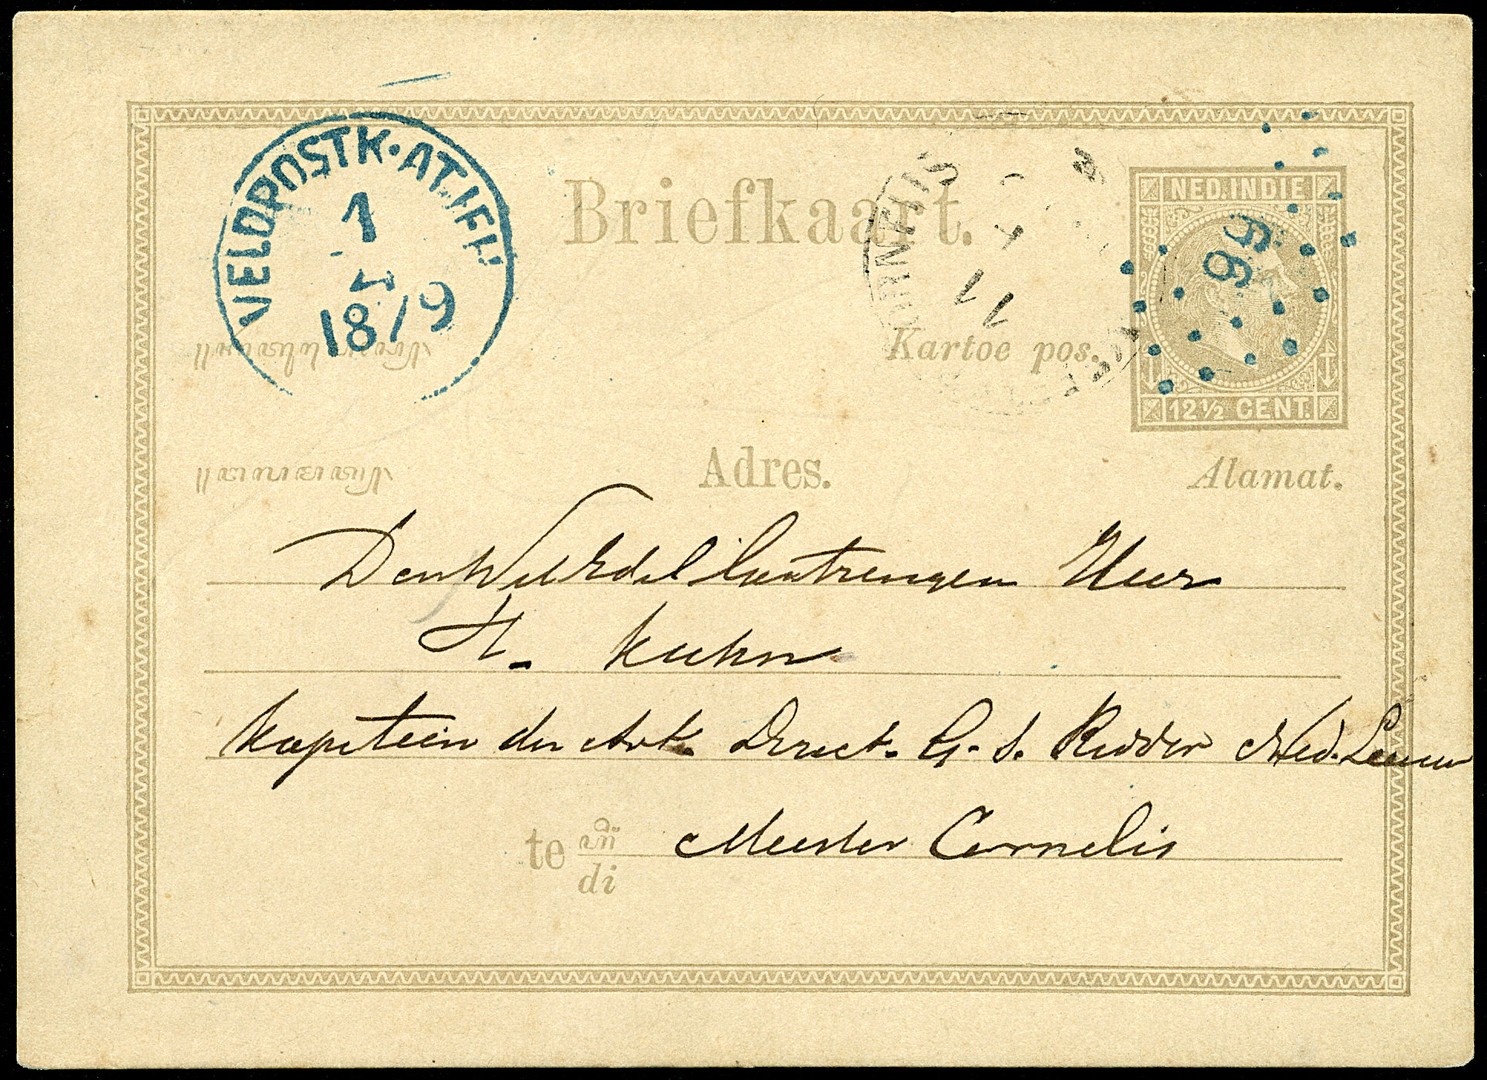 VELDPOSTK·ATJEH
1
1879
Briefkaart.
NED. INDIE
66
12½ CENT.
11
Kartoe pos.
Adres.
Alamat.
Den Wel Edel Gestrengen Heer
H. Kuhn
Kapitein der Art. Direct. G. S. Ridder Ned. Leeuw
te
di
Meester Cornelis